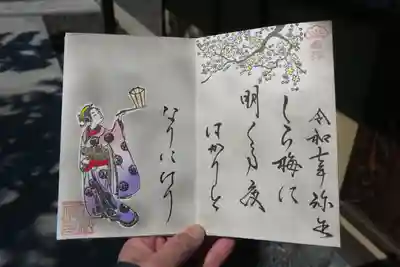 令和七年弥生
しら梅に
明くる夜
ばかりと
なりにけり